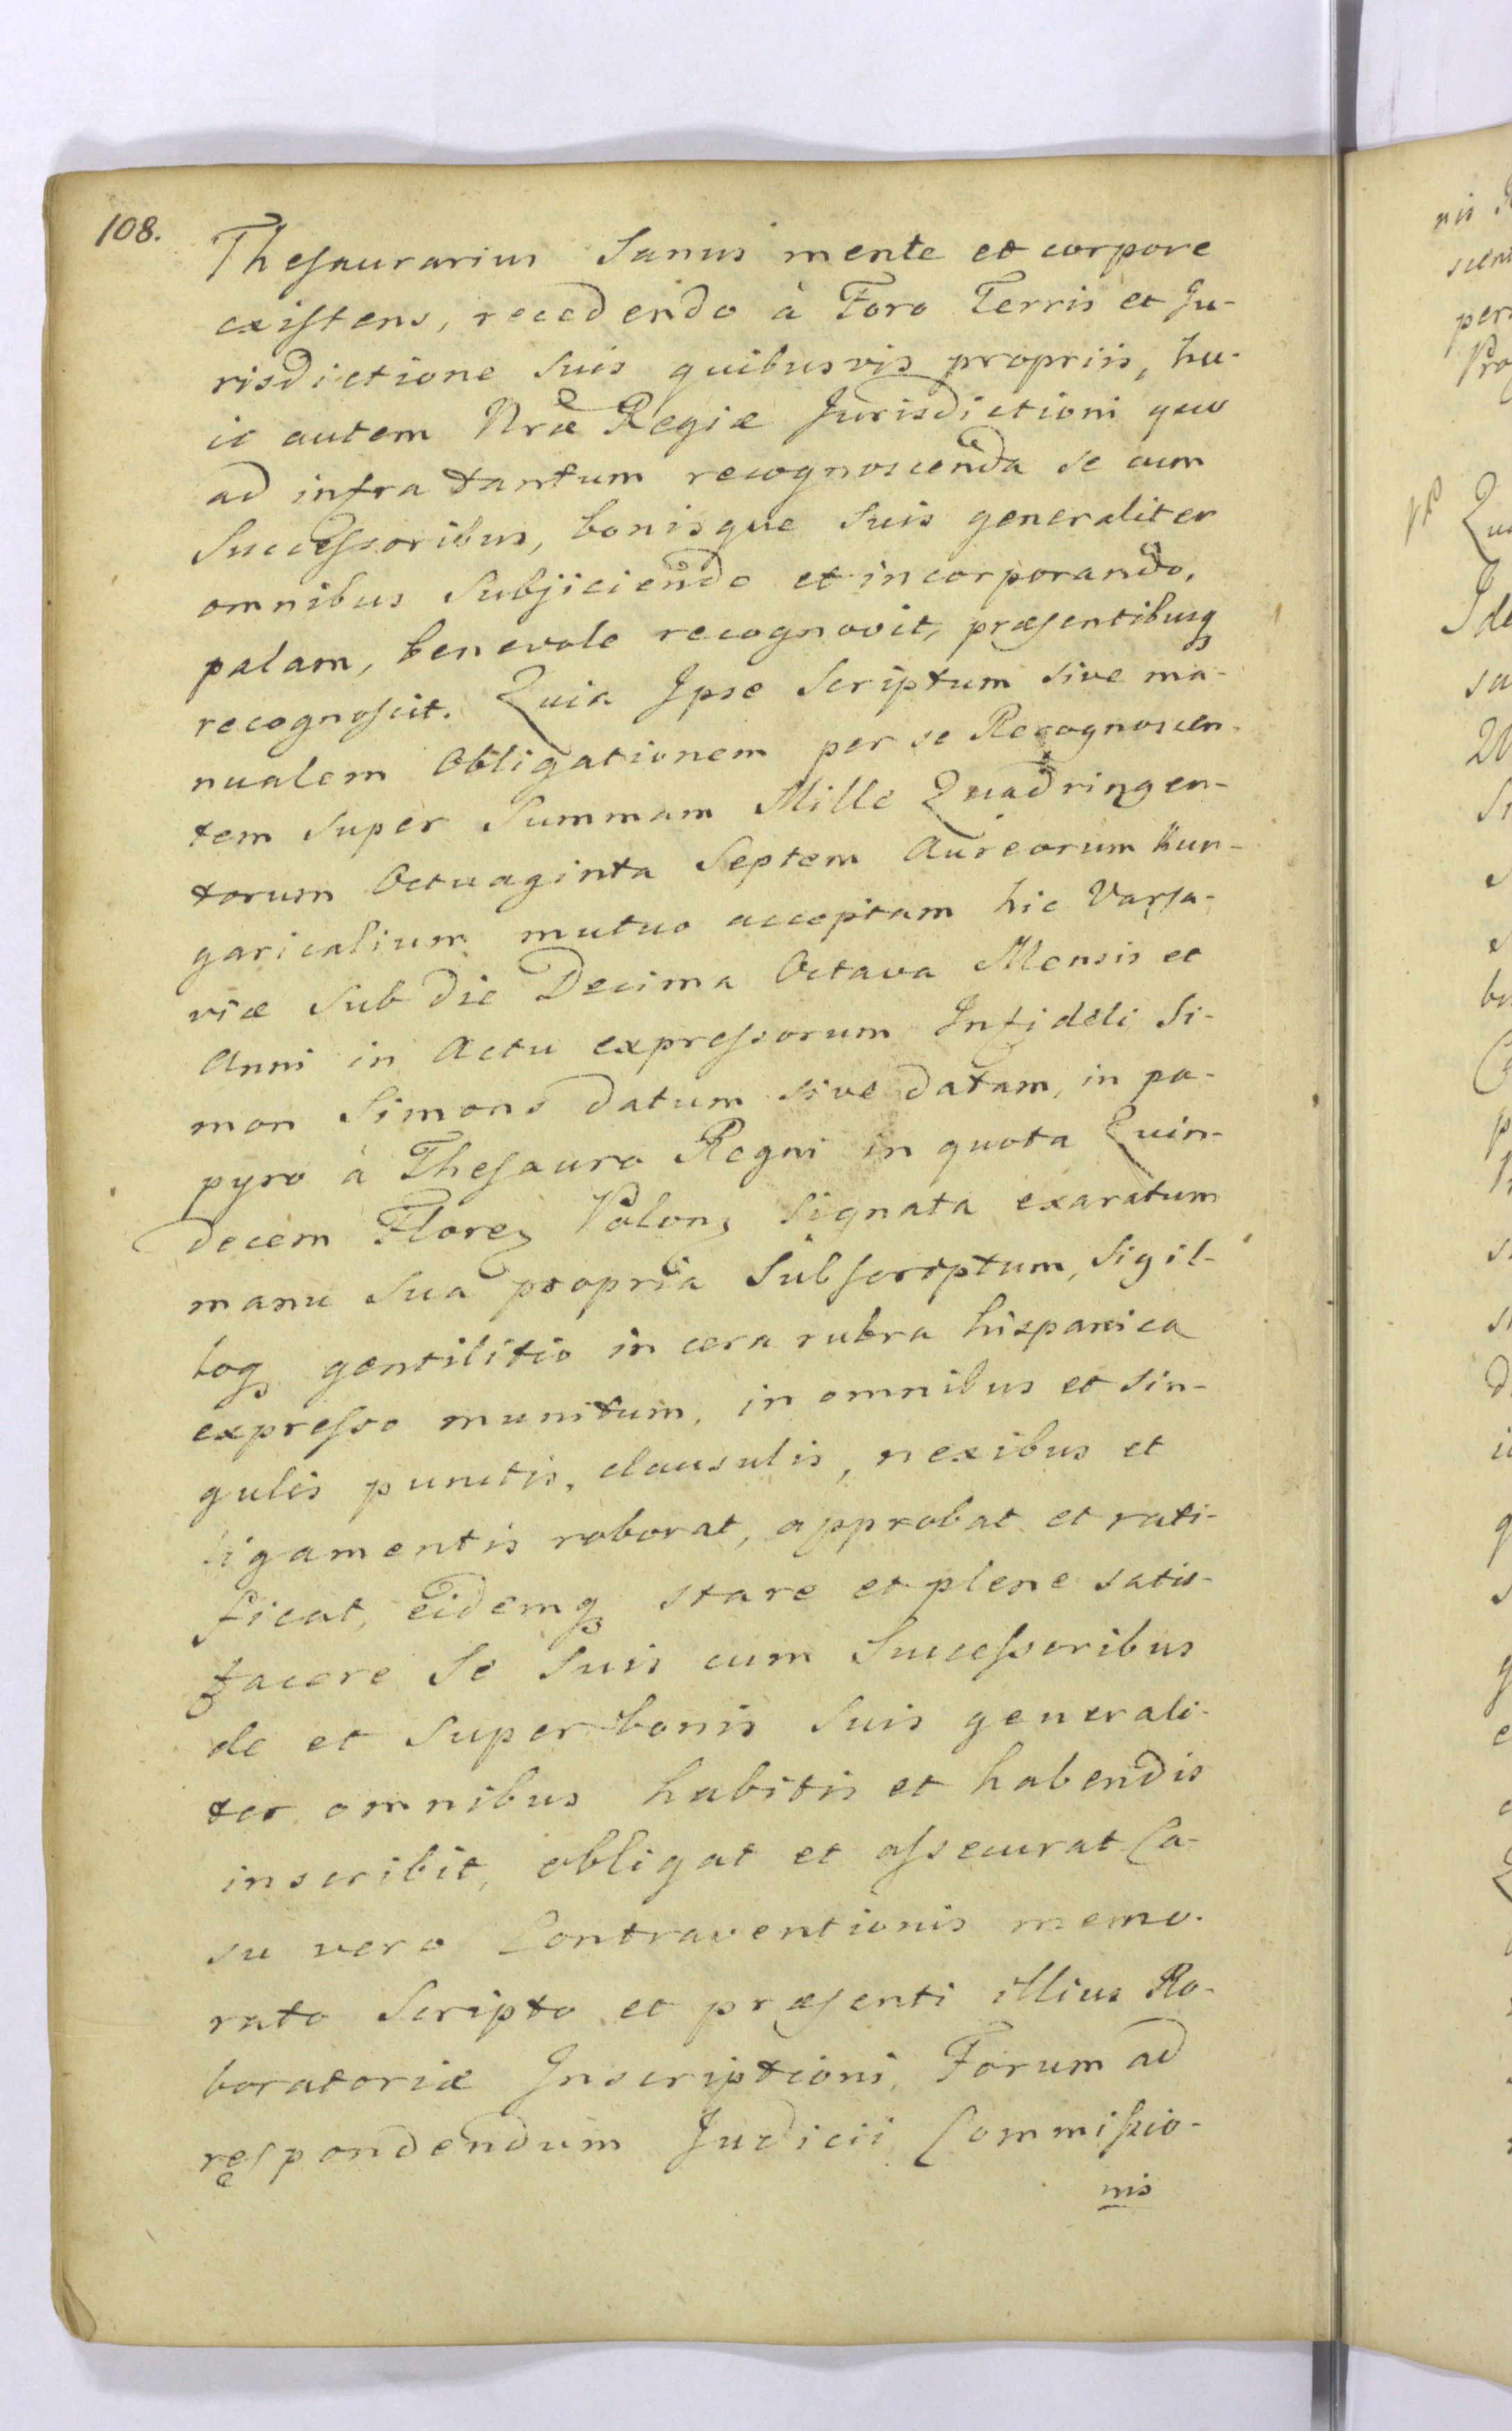 108.
Thesaurarius Sanus mente et corpore
existens, recedendo à Foro Terris et Ju-
risdictione Suis quibusvis propriis, hu-
ic autem Nræ Regiæ Jurisdictioni quo
ad infra tantum recognoscenda se cum
Successoribus, bonisque Suis generaliter
omnibus Subjiciendo et incorporando,
palam, benevole recognovit, præsentibusq
recognoscit. Quia Ipse Scriptum sive ma-
nualem Obligationem per se Recognoscen-
tem Super Summam Mille Quadringen-
torum Octuaginta Septem Aureorum Hun-
garicalium mutuo acceptam hic Varsa-
viæ Sub die Decima Octava Mensis et
Anni in Actu expressorum Infideli Si-
mon Simons datum sive datam, in pa-
pyro à Thesauro Regni in quota Quin-
decem Floren Polon, Signata exaratum
manu Sua propria Subscriptum, Sigil-
loq gentilitio in cera rubra hispanica
expresso munitum, in omnibus et sin-
gulis punctis, clausulis, nexibus et
ligamentis roborat, approbat et rati-
ficat, eidemq stare et plene satis-
facere Se Suis cum Successoribus
de et Super bonis Suis generali-
ter omnibus habitis et habendis
inscribit, obligat et assecurat Ca-
su vero Contraventionis memo-
rato Scripto et præsenti illius Ro-
boratoriæ Inscriptioni, Forum ad
respondendum Judicii Commissio-
nis